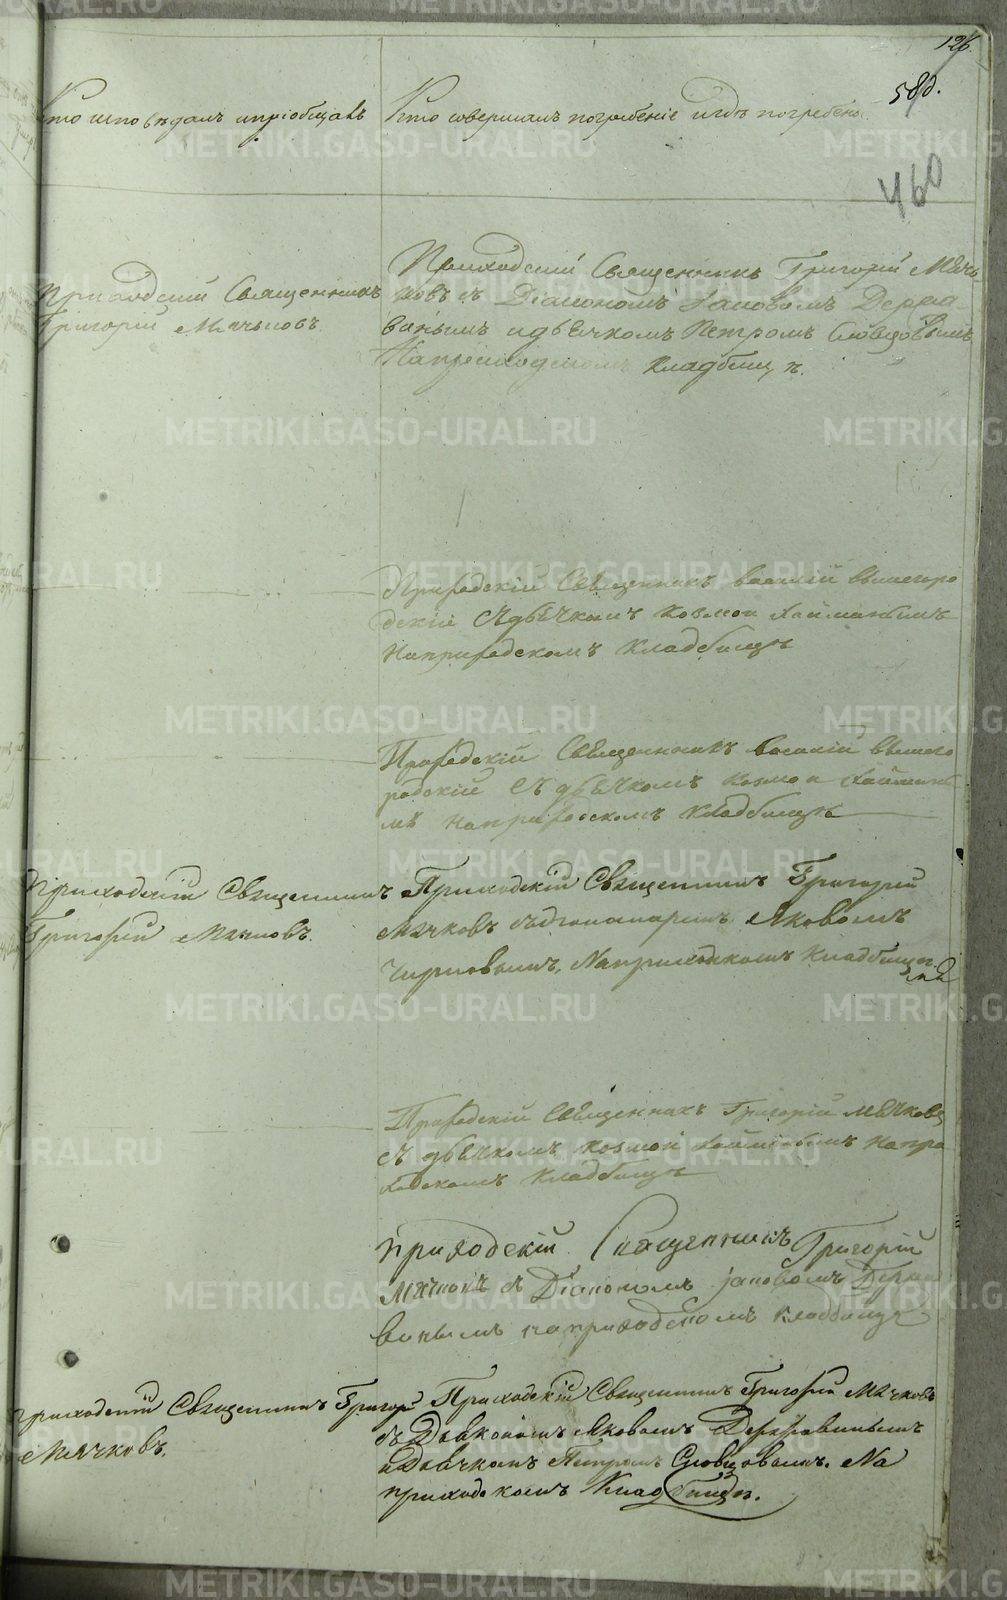 126.
58д.
Кто исповѣдалъ и пріобщалъ
Кто совершалъ погребеніе и гдѣ погребены
460
Приходскій Священникъ
Григорій Мячковъ.
Приходскій Священникъ Григорій Мяч
ковъ съ Діакономъ Іаковомъ Держа
винымъ и дьячкомъ Петромъ Словцовымъ
На приходскомъ кладбищѣ.
Приходскій Священникъ василій вышегоро
дскій Съ дьячкомъ козмои
На приходскомъ кладбищѣ
Приходскій Священникъ василій вышего
родскій Съ дьячкомъ козмои
мъ на приходскомъ кладбищѣ
Приходскій Священникъ
Григорій Мячковъ.
Приходскій Священникъ Григорій
Мячковъ съ дпономаремъ Яковомъ
Черновымъ. На приходскомъ кладбищѣ.
Приходскій Священникъ Григорій мячковъ
съ дьячкомъ козмои на при
ходскомъ кладбищѣ
приходскій Священникъ Григорій
мячковъ съ Діакономъ іаковомъ Держа
винымъ на приходскомъ кладбищѣ
Приходскій Священникъ Григорій
Мячковъ.
Приходскій Священникъ Григорій Мячковъ
съ Дьякономъ Яковомъ Державинымъ
и Дьячкомъ Петромъ Словцовымъ. На
приходскомъ Кладбищѣ.
METRIKI.GASO-URAL.RU